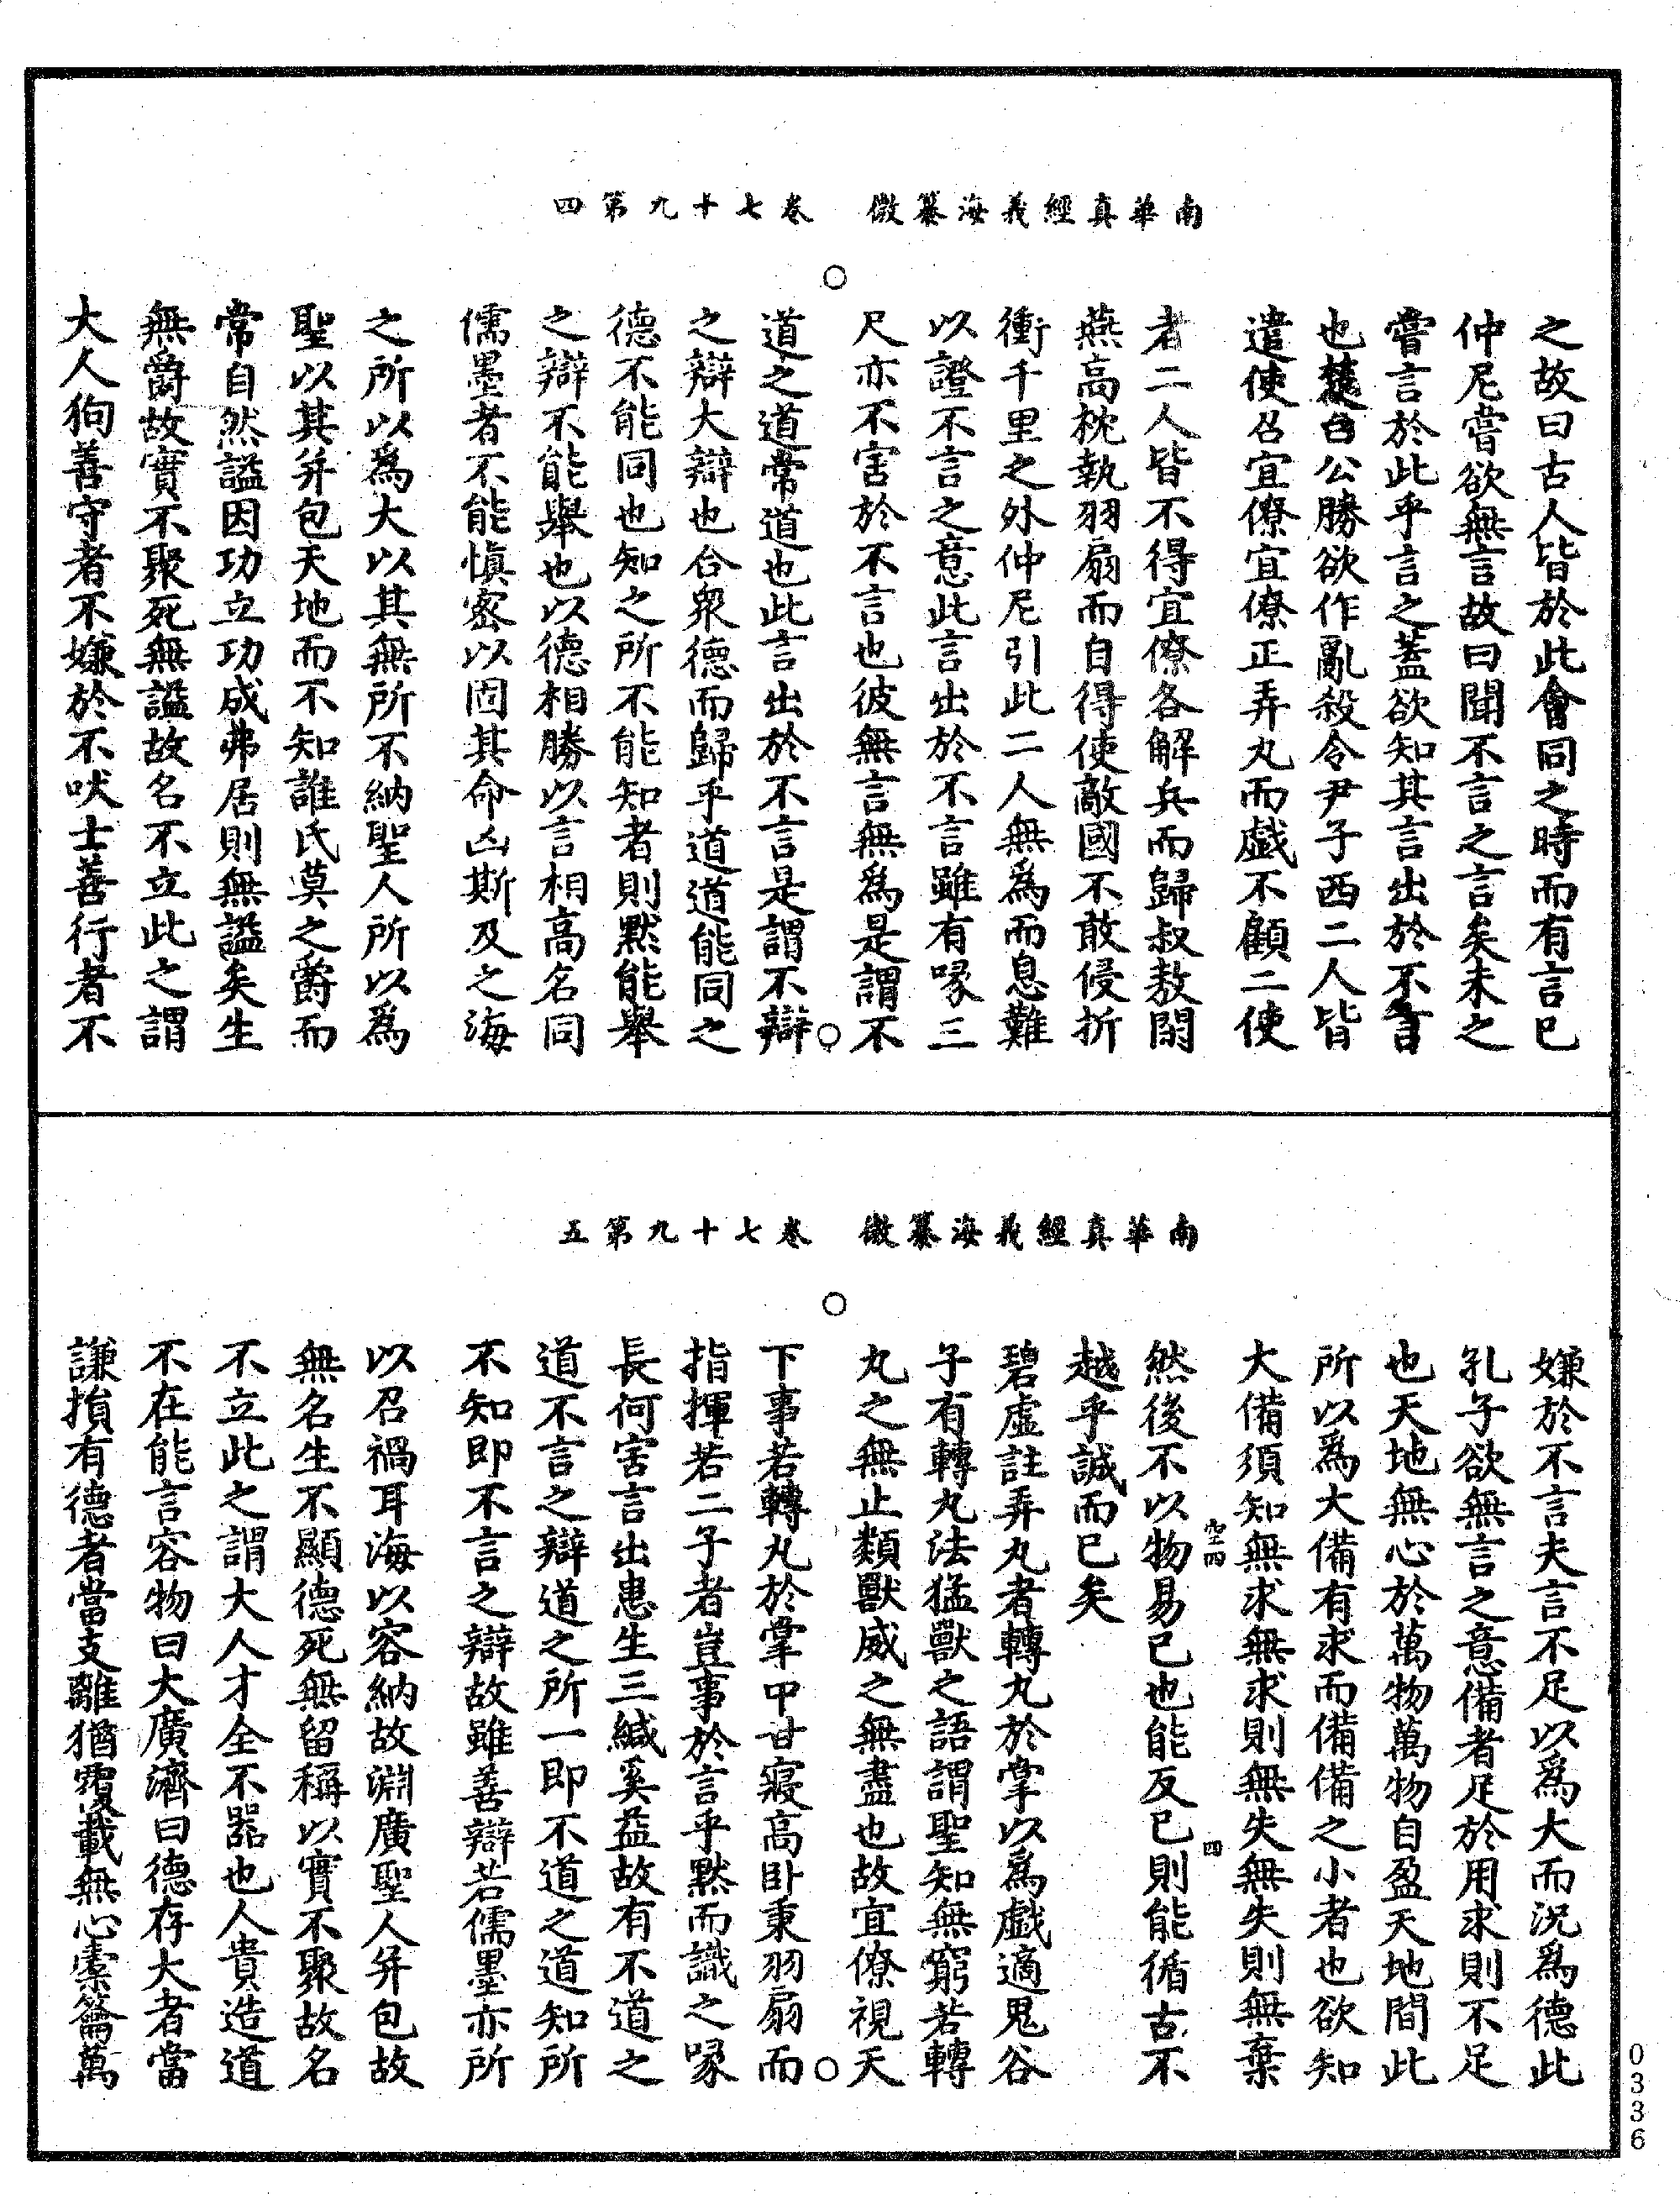 南華真經義海纂微　卷七十九第四
之故曰古人皆於此會同之時而有言已
仲尼嘗欲無言故曰聞不言之言矣未之
嘗言於此乎言之蓋欲知其言出於不言
也楚白公勝欲作亂殺令尹子西二人皆
遣使召宜僚宜僚正弄丸而戲不顧二使
者二人皆不得宜僚各解兵而歸叔敖閉
燕高枕執羽扇而自得使敵國不敢侵折
衝千里之外仲尼引此二人無為而息難
以證不言之意此言出於不言雖有喙三
尺亦不害於不言也彼無言無為是謂不
道之道常道也此言出於不言是謂不辯
之辯大辯也合衆德而歸乎道道能同之
德不能同也知之所不能知者則默能舉
之辯不能舉也以德相勝以言相高名同
儒墨者不能慎密以固其命凶斯及之海
之所以為大以其無所不納聖人所以為
聖以其并包天地而不知誰氏莫之爵而
常自然謚因功立功成弗居則無謚矣生
無爵故實不聚死無謚故名不立此之謂
大人狗善守者不嫌於不吠士善行者不
南華真經義海纂微　卷七十九第五
嫌於不言夫言不足以為大而況為德此
孔子欲無言之意備者足於用求則不足
也天地無心於萬物萬物自盈天地間此
所以為大備有求而備備之小者也欲知
大備須知無求無求則無失無失則無棄
然後不以物易己也能反已則能循古不
越乎誠而已矣
碧虛註弄丸者轉丸於掌以為戲適鬼谷
子有轉丸法猛獸之語謂聖知無窮若轉
丸之無止類獸威之無盡也故宜僚視天
下事若轉丸於掌中甘寢高卧秉羽扇而
指揮若二子者豈事於言乎默而識之喙
長何害言出患生三緘奚益故有不道之
道不言之辯道之所一即不道之道知所
不知即不言之辯故雖善辯若儒墨亦所
以召禍耳海以容納故淵廣聖人并包故
無名生不顯德死無留稱以實不聚故名
不立此之謂大人才全不器也人貴造道
不在能言容物曰大廣濟曰德存大者當
謙損有德者當支離猶覆載無心橐籥萬
四
0336